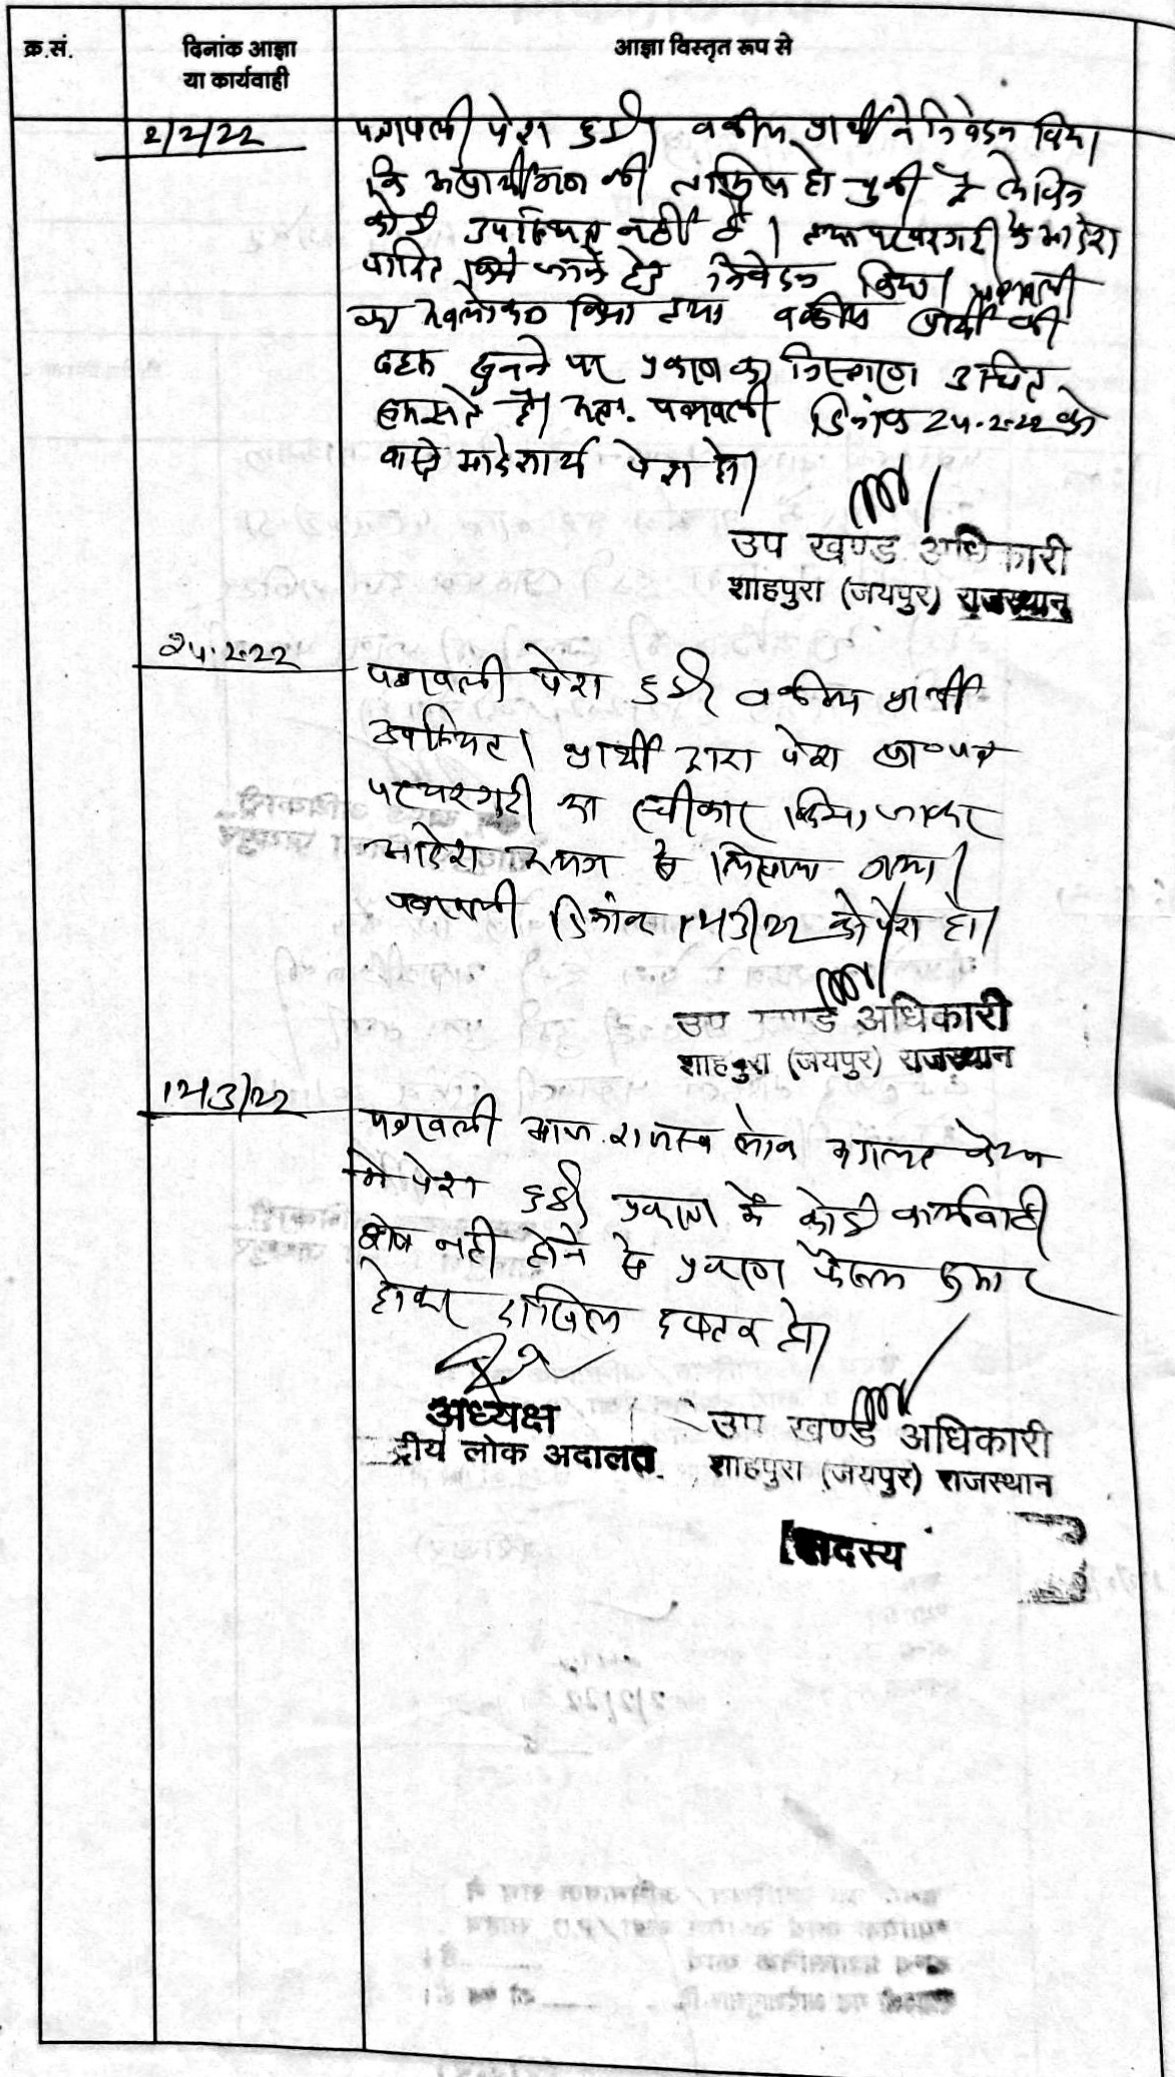 क्र.सं.
दिनांक आज्ञा
या कार्यवाही
आज्ञा विस्तृत रूप से
2/2/22
पत्रावली पेश हुई। वकील प्रार्थी ने निवेदन किया
कि अप्रार्थीगण की तामिल हो चुकी है लेकिन
कोई उपस्थित नहीं है। पत्थरगढी के आदेश
पारित किये जाने हेतु निवेदन किया। पत्रावली
का अवलोकन किया तथा वकील प्रार्थी की
बहस सुनने पर प्रकरण का निस्तारण उचित
समझते है। अतः पत्रावली दिनांक 24.2.22 को
वास्ते आदेशार्थ पेश हो।
उप खण्ड अधिकारी
शाहपुरा (जयपुर) राजस्थान
24.2.22
पत्रावली पेश हुई। वकील प्रार्थी
उपस्थित। प्रार्थी द्वारा पेश प्रा०पत्र
पत्थरगढी का स्वीकार किया जाकर
आदेश पृथक से लिखाया गया।
पत्रावली दिनांक 12/3/22 को पेश हो।
उप खण्ड अधिकारी
शाहपुरा (जयपुर) राजस्थान
12/3/22
पत्रावली आज राजस्व लोक अदालत केम्प
मे पेश हुई। प्रकरण में कोई कार्यवाही
शेष नही होने से प्रकरण फैसल शुमार
होकर दाखिल दफ्तर हो।
अध्यक्ष
ट्रीय लोक अदालत
उप खण्ड अधिकारी
शाहपुरा (जयपुर) राजस्थान
सदस्य